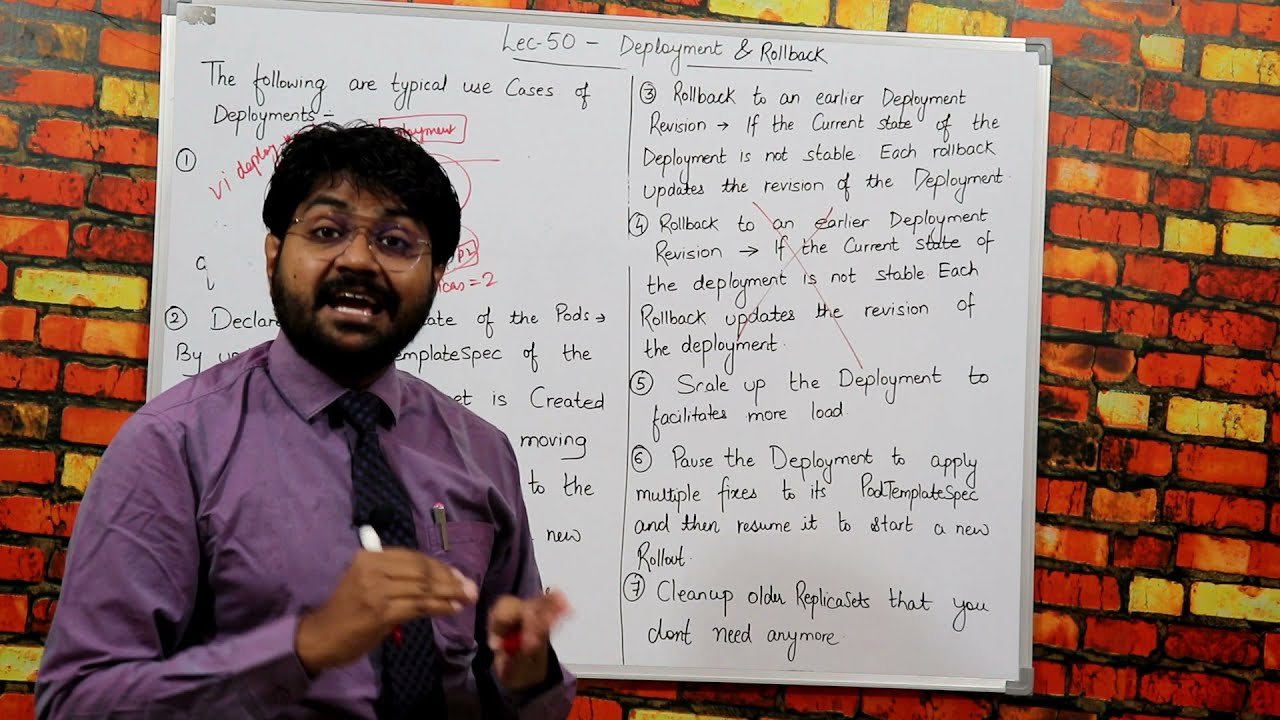 Lec-50 - Deployment & Rollback
The following are typical use Cases of
Deployments :-
①
vi deploy
replicas=2
② Declare
ate of the Pods →
By
TemplateSpec of the
et is Created
moving
to the
new
③ Rollback to an earlier Deployment
Revision → If the Current state of the
Deployment is not stable. Each rollback
updates the revision of the Deployment.
④ Rollback to an earlier Deployment
Revision → If the Current state of
the deployment is not stable. Each
Rollback updates the revision of
the deployment.
⑤ Scale up the Deployment to
facilitates more load.
⑥ Pause the Deployment to apply
multiple fixes to its PodTemplateSpec
and then resume it to start a new
Rollout.
⑦ Cleanup older ReplicaSets that you
dont need anymore.